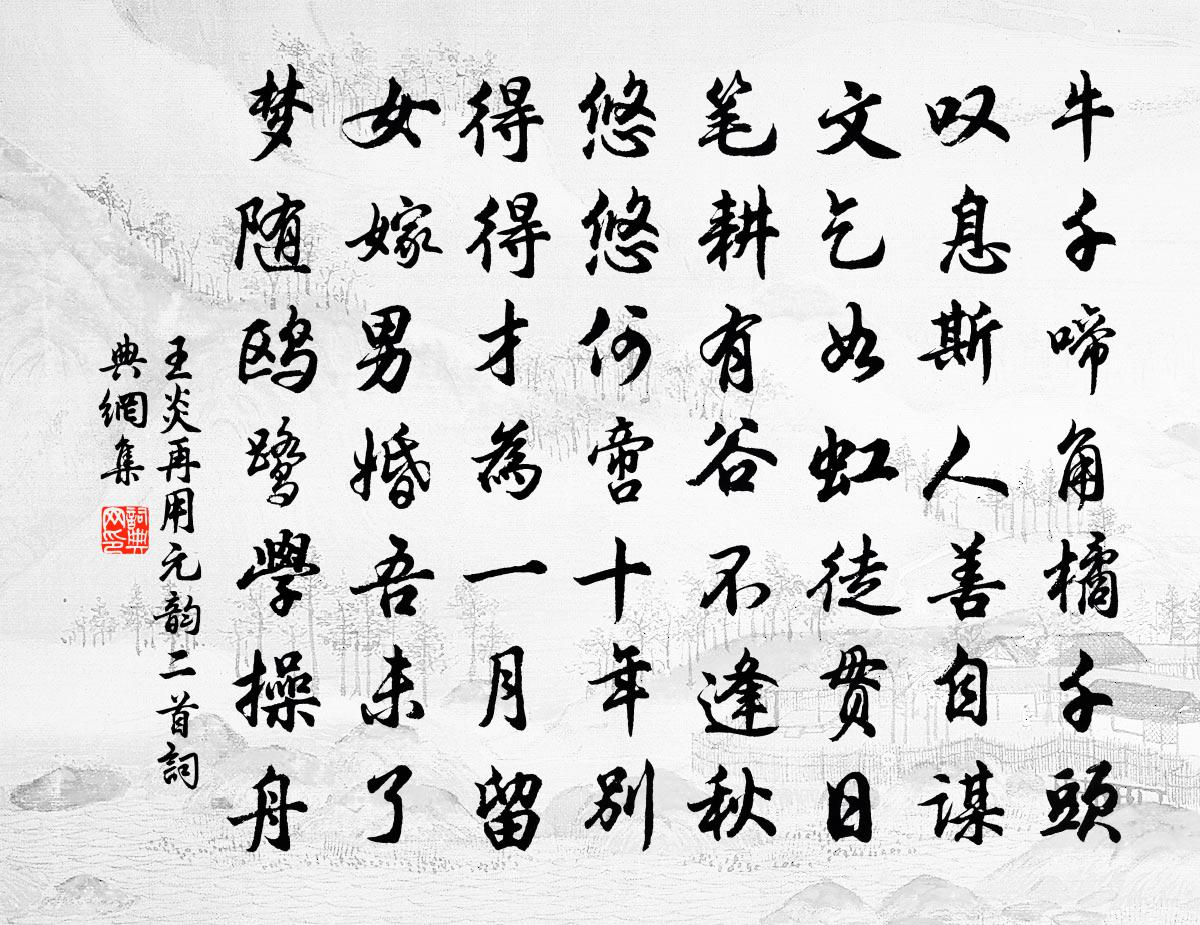 牛千啼角橘千頭
叹息斯人善自谋
文乞如虹徒贯日
笔耕有谷不逢秋
悠悠何啻十年别
得得才為一月留
女嫁男婚吾未了
梦随鸥鹭學操舟
王炎再用元韵二首詞
典網集
詞典网印